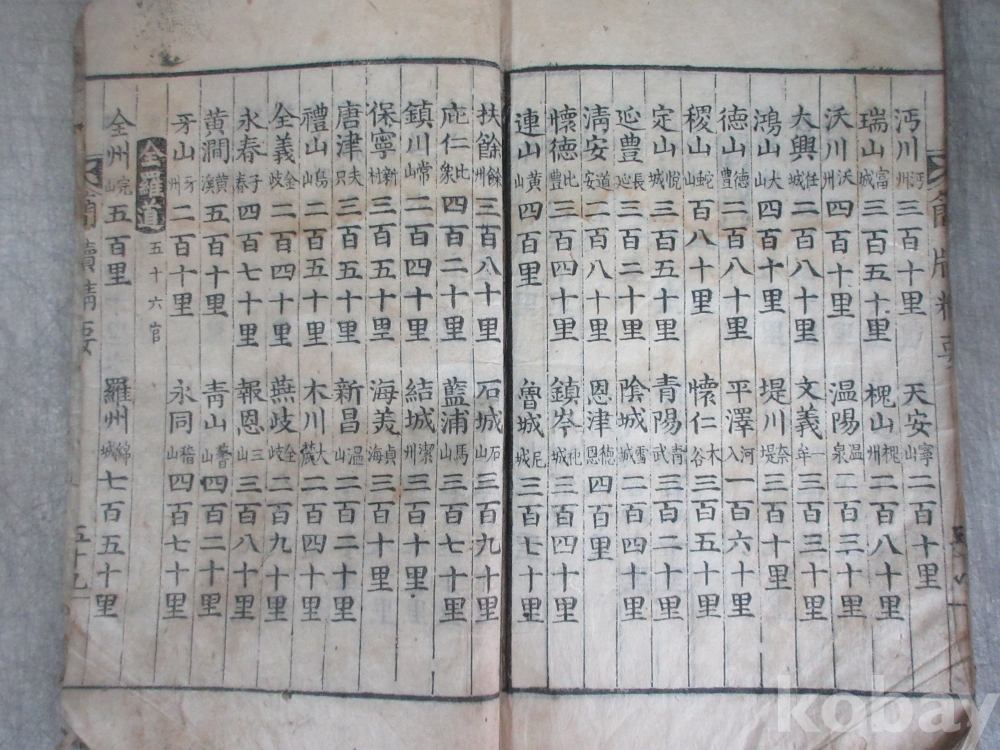 沔川 沔州 三百十里 天安 寧山 二百十里
瑞山 富城 三百五十里 槐山 槐州 二百八十里
沃川 沃州 四百十里 温陽 温泉 二百三十里
大興 任城 二百八十里 文義 一牟 三百三十里
鴻山 大山 四百十里 堤川 奈堤 三百十里
德山 德豊 二百八十里 平澤 河八 一百六十里
稷山 蛇山 百八十里 懷仁 未谷 三百五十里
定山 悅城 三百十里 青陽 青武 三百二十里
延豊 長延 三百十里 陰城 雪城 二百四十里
淸安 道安 二百八十里 恩津 德恩 四百里
懷德 比豊 三百四十里 鎮岑 杞城 三百四十里
連山 黃山 四百里 魯城 尼城 三百七十里
扶餘 餘州 三百八十里 石城 石山 三百九十里
庇仁 比衆 四百二十里 藍浦 馬山 三百七十里
鎮川 常山 二百二十里 結城 潔州 三百十里
保寧 新村 三百五十里 海美 貞海 三百十里
唐津 夫只 三百五十里 新昌 温山 二百二十里
禮山 烏山 二百五十里 木川 大麓 二百四十里
全義 金歧 二百四十里 燕歧 全歧 二百九十里
永春 子春 四百七十里 報恩 三山 三百八十里
黄澗 黃溪 五百十里 青山 耆山 四百二十里
牙山 牙州 二百十里 永同 稽山 四百七十里
全羅道 五十六官
全州 完山 五百里 羅州 錦城 七百五十里
簡牘精要 五十九